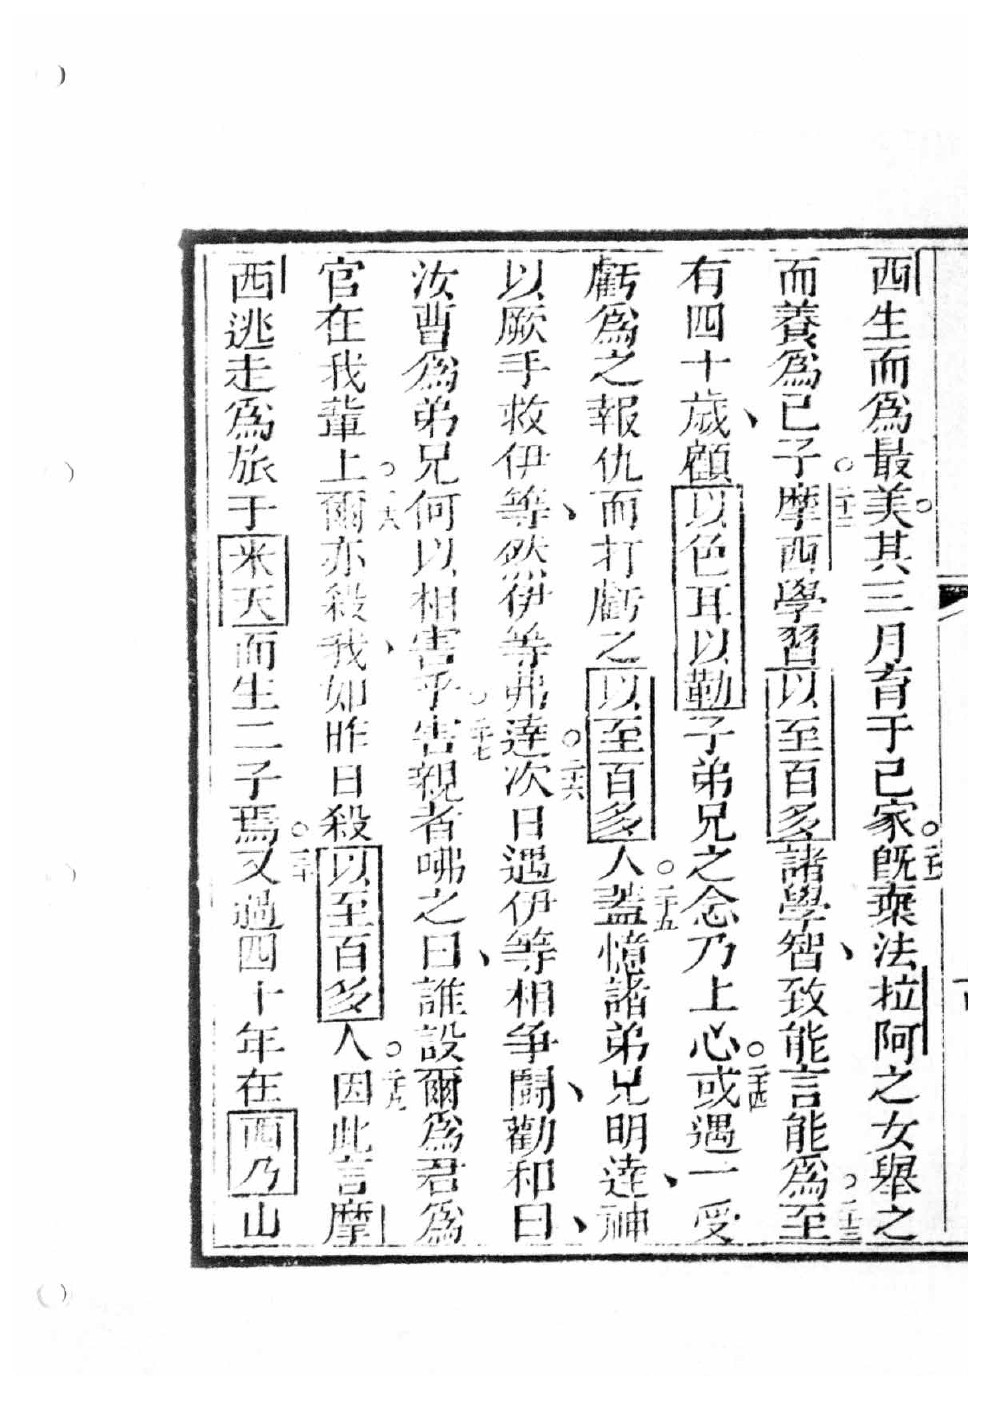 西生而為最美其三月育于己家旣棄法拉阿之女舉之
而養為己子摩西學習以至百多諸學智致能言能為至
有四十歲顧以色耳以勒子弟兄之念乃上心或遇一受
虧為之報仇而打虧之以至百多人蓋憶諸弟兄明達神
以厥手救伊等然伊等弗達次日遇伊等相爭鬪勸和曰
汝曹為弟兄何以相害乎害親者咈之曰誰設爾為君為
官在我輩上爾亦殺我如昨日殺以至百多人因此言摩
西逃走為旅于米天而生二子焉又過四十年在西乃山